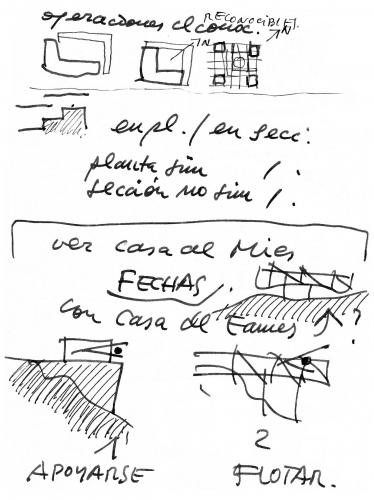 operaciones el conoc.
RECONOCIBLES.
IN
IN
en pl. / en secc:
planta sim / .
sección no sim / .
ver casa de Mies
FECHAS.
con casa de Eames ?
1
2
APOYARSE
FLOTAR.